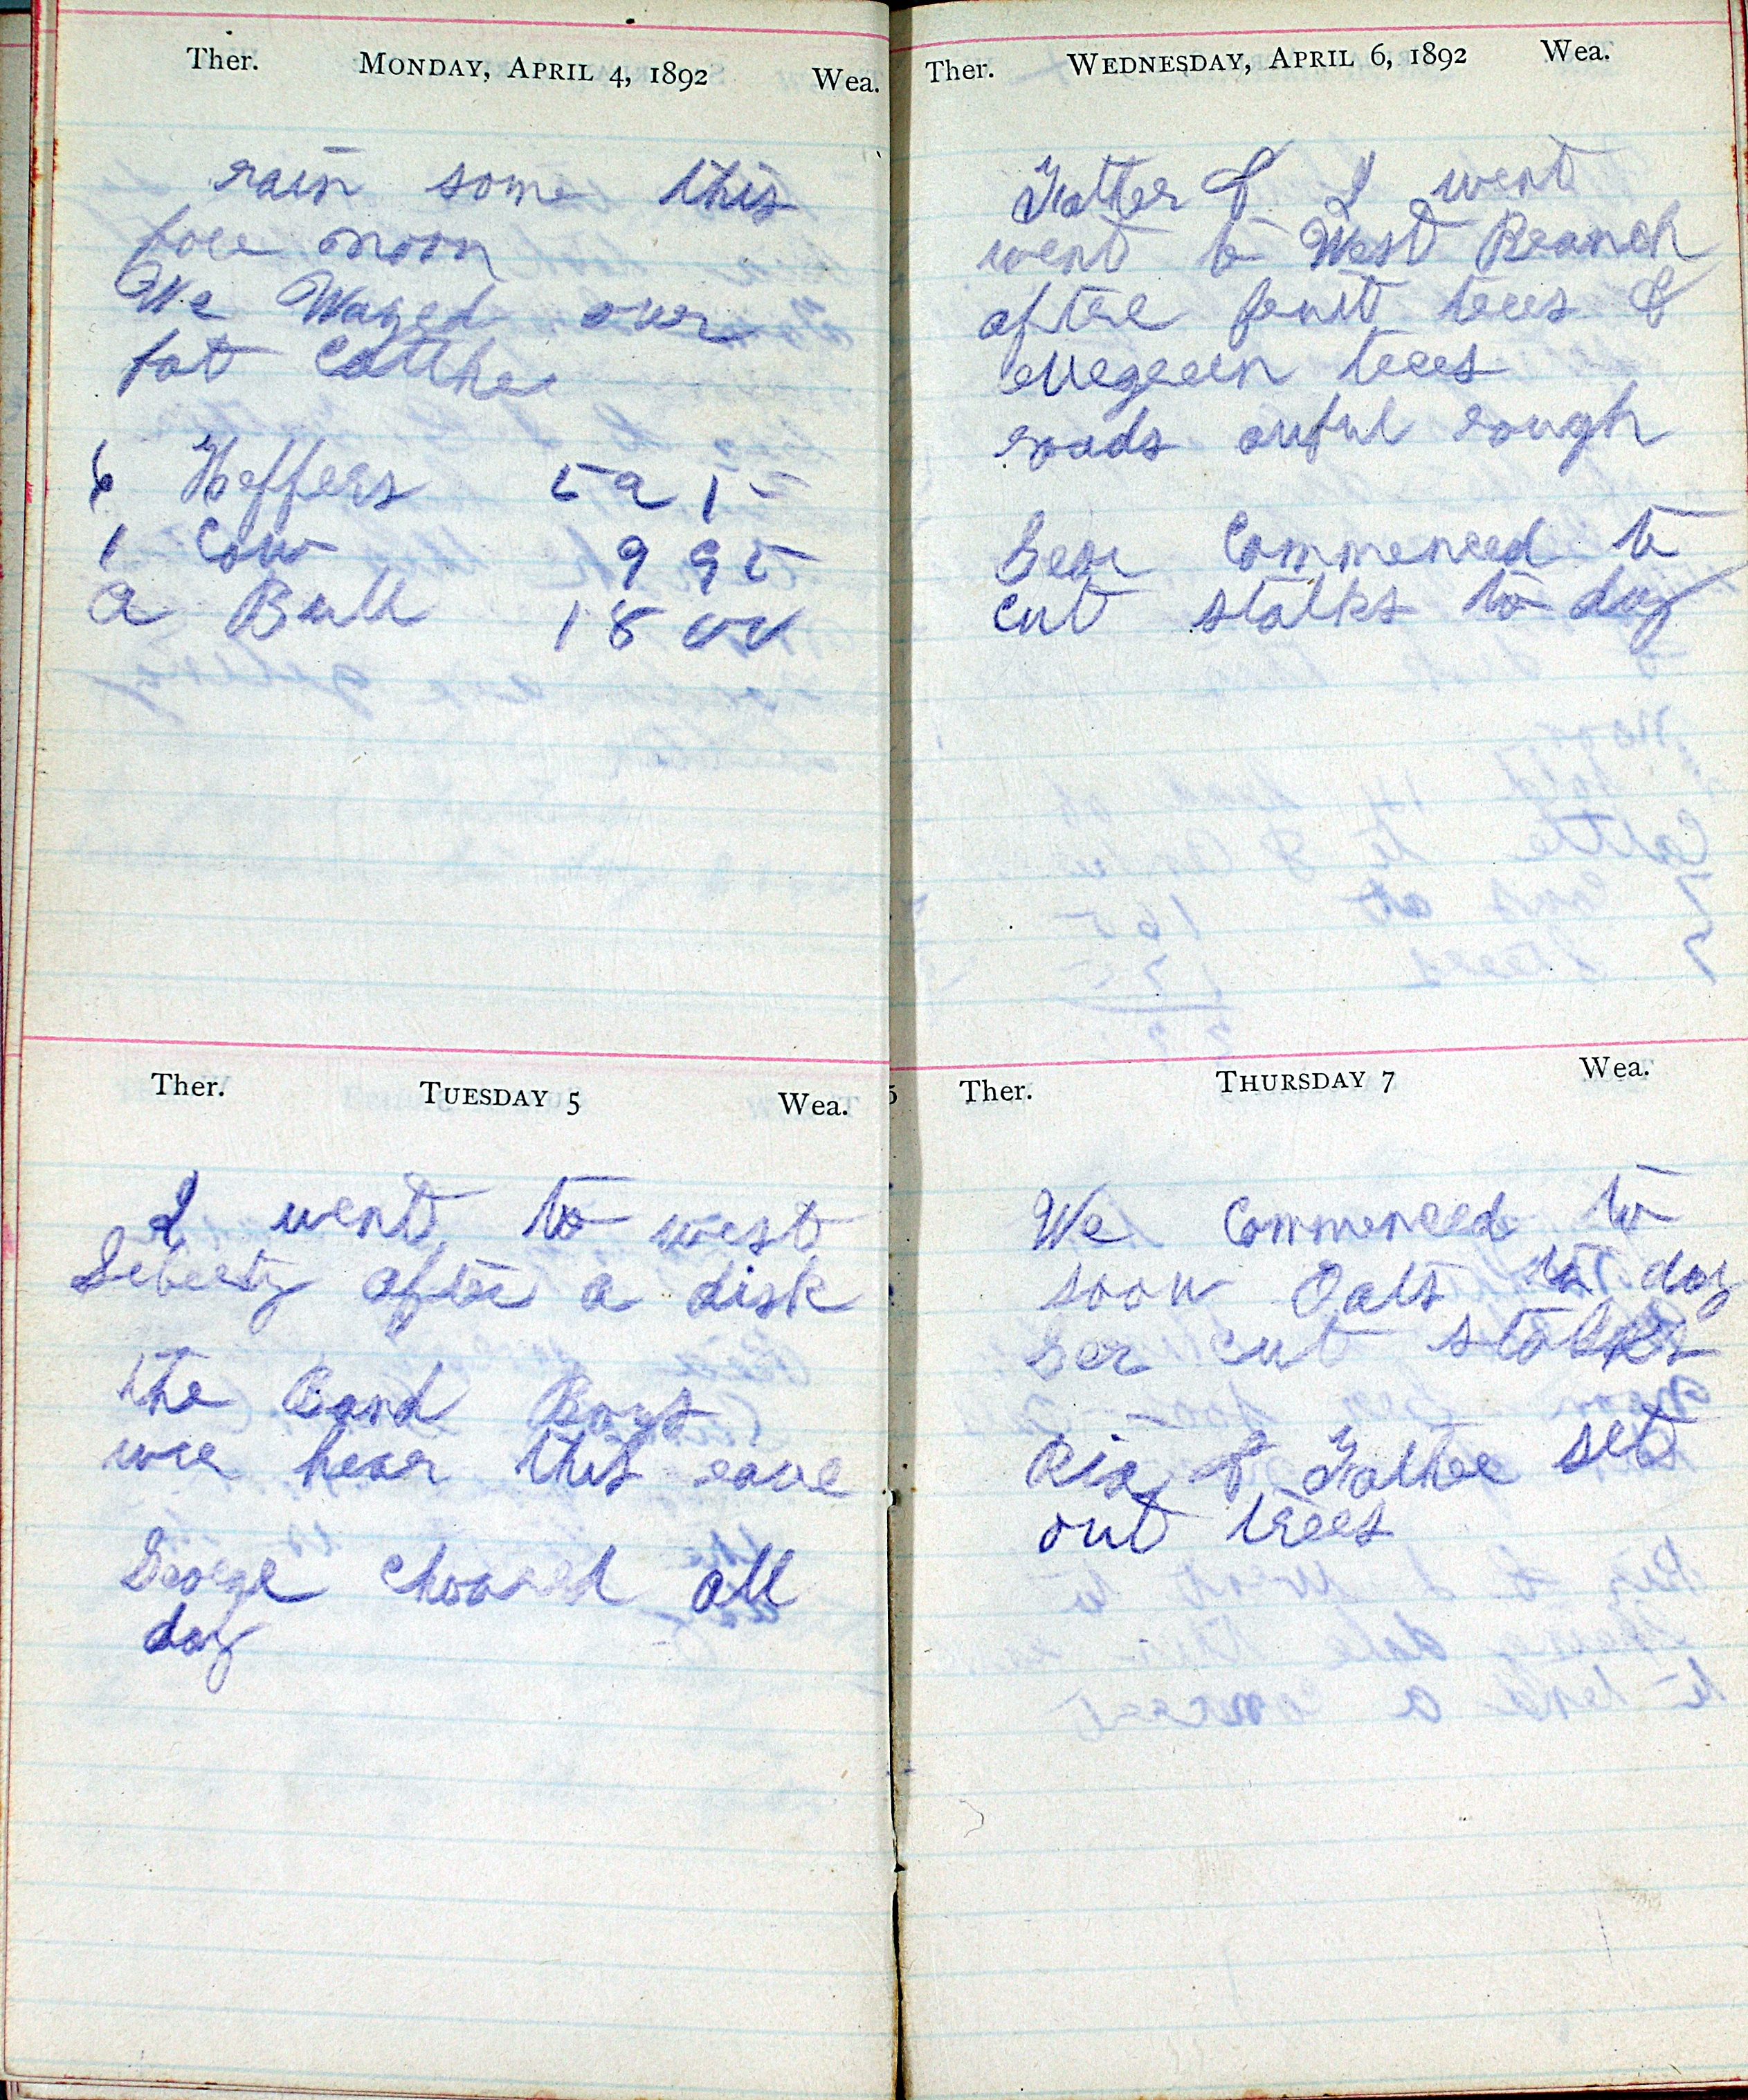 Ther. MONDAY, APRIL 4, 1892 Wea.
rain some this
fore noon
We Wayed over
fat Catthe
6 Heffers 5215
1 Cow 995
2 Bull 1800
Ther. TUESDAY 5 Wea.
I went to west
Liberty after a disk
the Band Boys
wer hear this eave
George choared all
day
Ther. WEDNESDAY, APRIL 6, 1892 Wea.
Father & I went
went to West Branch
after fruit trees &
evegreen trees
roads awful rough
Commenced to
cut stalks to day
Ther. THURSDAY 7 Wea.
We Commenced to
soow Oats to day
cut stalks
& Father set
out trees